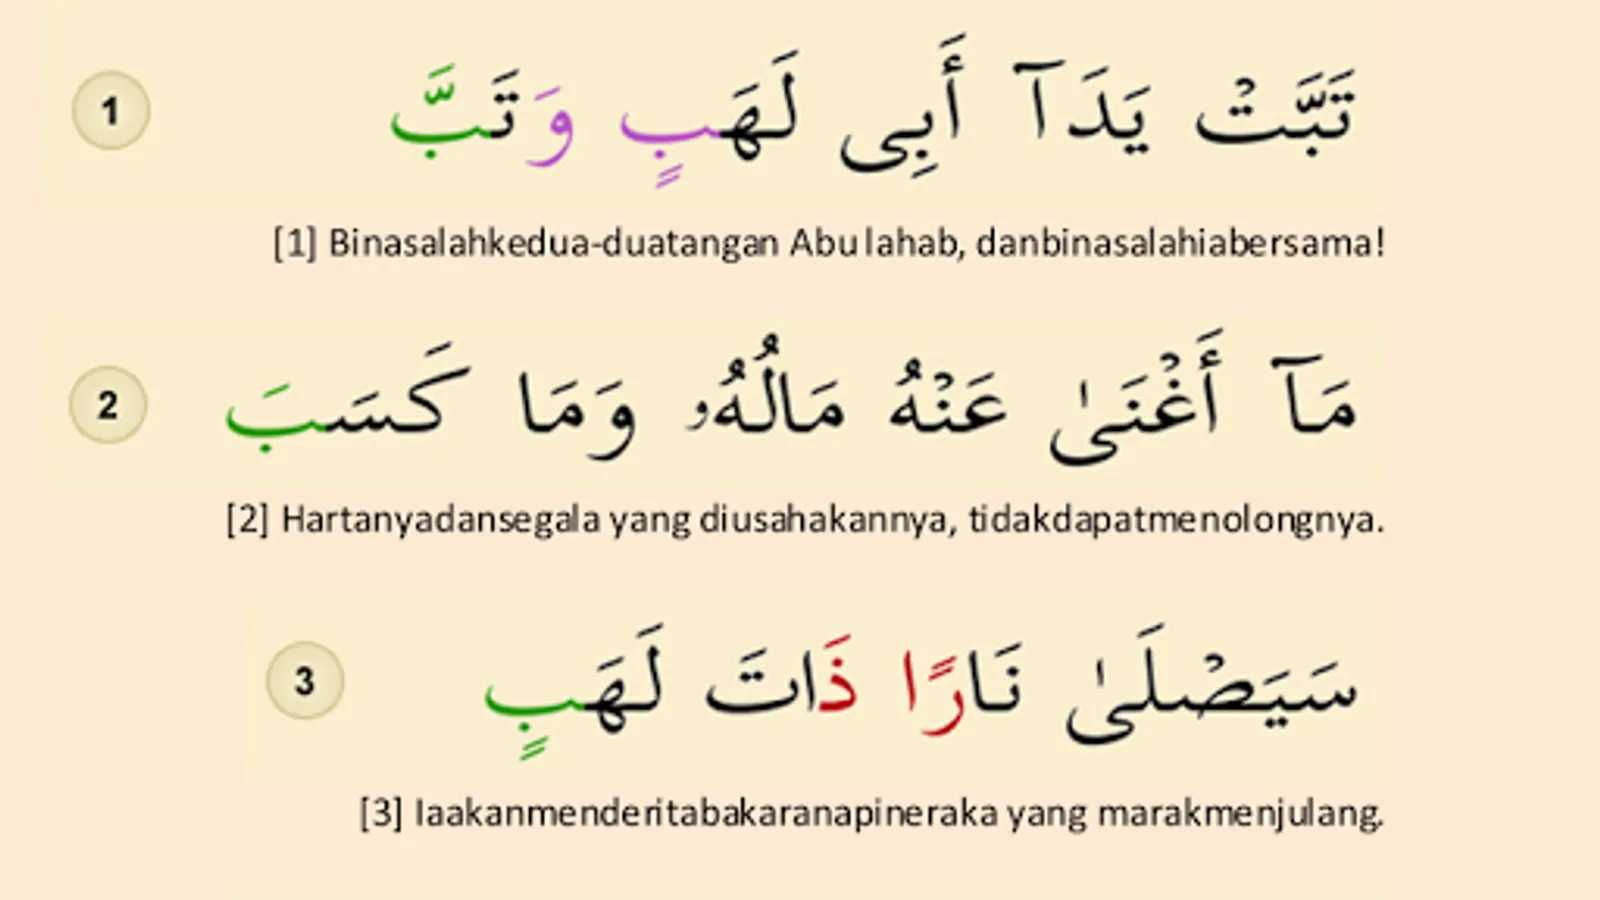 تَبَّتْ يَدَآ أَبِى لَهَبٍ وَتَبَّ 1
[1] Binasalahkedua-duatangan Abu lahab, danbinasalahiabersama!
مَآ أَغْنَىٰ عَنْهُ مَالُهُۥ وَمَا كَسَبَ 2
[2] Hartanyadansegala yang diusahakannya, tidakdapatmenolongnya.
سَيَصْلَىٰ نَارًا ذَاتَ لَهَبٍ 3
[3] Iaakanmenderitabakaranapineraka yang marakmenjulang.